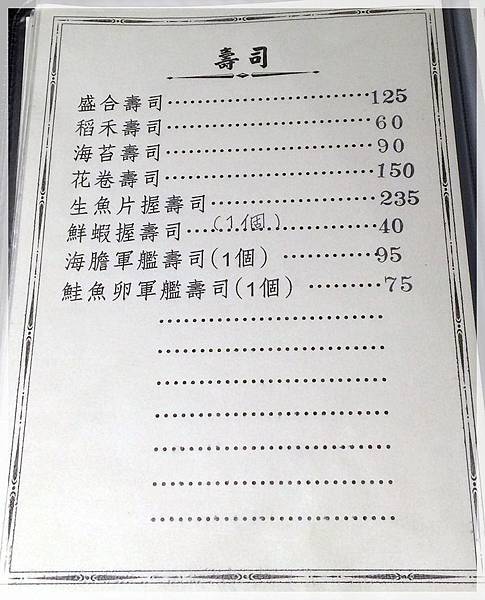 壽司
盛合壽司⋯⋯⋯⋯⋯⋯⋯⋯125
稻禾壽司⋯⋯⋯⋯⋯⋯⋯⋯60
海苔壽司⋯⋯⋯⋯⋯⋯⋯⋯90
花卷壽司⋯⋯⋯⋯⋯⋯⋯⋯150
生魚片握壽司⋯⋯⋯⋯⋯⋯235
鮮蝦握壽司⋯(1個)⋯⋯⋯⋯40
海膽軍艦壽司(1個)⋯⋯⋯⋯95
鮭魚卵軍艦壽司(1個)⋯⋯⋯75